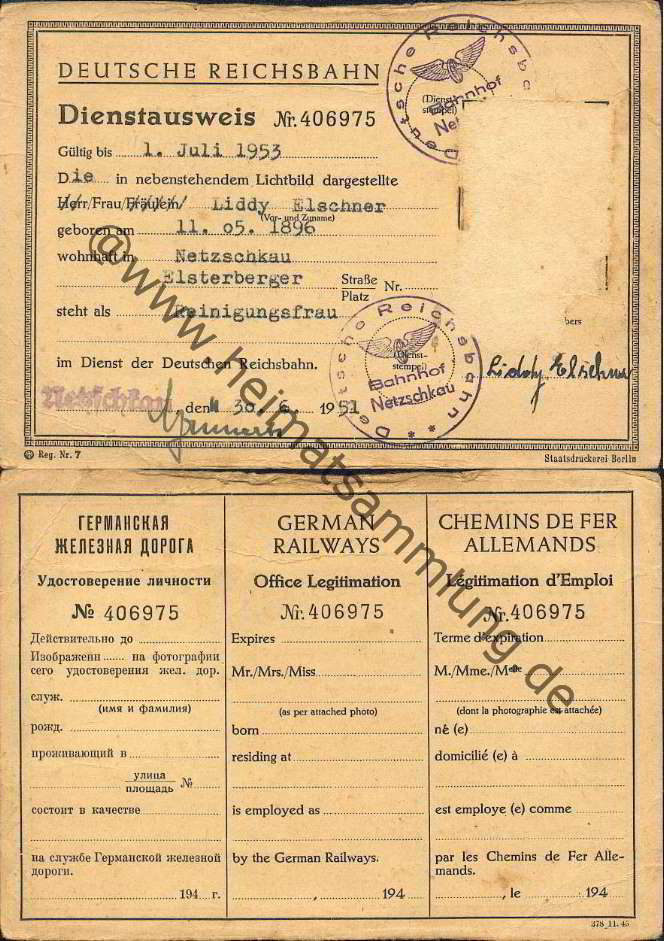 DEUTSCHE REICHSBAHN
Dienstausweis Nr. 406975
Gültig bis 1. Juli 1953
Die in nebenstehendem Lichtbild dargestellte
Herr/Frau/Fräulein Liddy Elschner
(Vor- und Zuname)
geboren am 11. o5. 1896
wohnhaft in Netzschkau
Elsterberger Straße Nr.
Platz
steht als Reinigungsfrau
im Dienst der Deutschen Reichsbahn.
Netzschkau, den 30. 6. 1951
Deutsche Reichsb
(Dienst-
stempel)
Bahnhof
Net
Deutsche Reichsbahn
(Dienst-
stempel)
Bahnhof
Netzschkau
bers
Liddy Elschner
Reg. Nr. 7
Staatsdruckerei Berlin
ГЕРМАНСКАЯ
ЖЕЛЕЗНАЯ ДОРОГА
Удостоверение личности
№ 406975
Действительно до
Изображенн на фотографии
сего удостоверения жел. дор.
служ.
(имя и фамилия)
рожд.
проживающий в
улица
площадь №
состоит в качестве
на службе Германской железной
дороги.
194 г.
GERMAN
RAILWAYS
Office Legitimation
Nr. 406975
Expires
Mr./Mrs./Miss
(as per attached photo)
born
residing at
is employed as
by the German Railways.
, 194
CHEMINS DE FER
ALLEMANDS
Légitimation d'Emploi
Nr. 406975
Terme d'expiration
M./Mme./Mlle
(dont la photographie est attachée)
né (e)
domicilié (e) à
est employe (e) comme
par les Chemins de Fer Alle-
mands.
, le 194
378_11. 45
@www.heimatsammlung.de